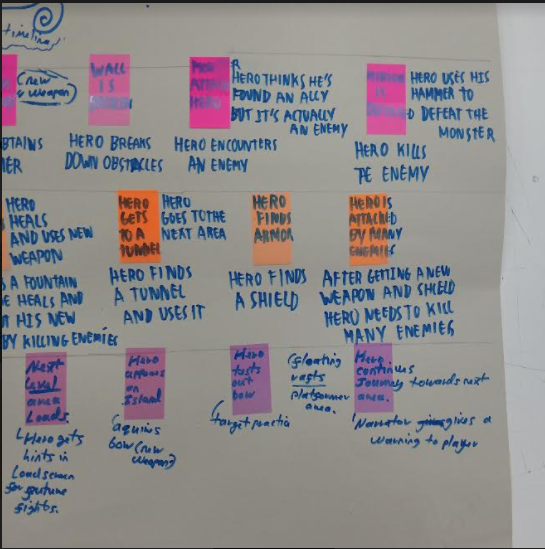 timeline
(new
weapon)
WALL
IS
HERO THINKS HE'S
FOUND AN ALLY
BUT IT'S ACTUALLY
AN ENEMY
HERO USES HIS
HAMMER TO
DEFEAT THE
MONSTER
HERO BREAKS
DOWN OBSTACLES
HERO ENCOUNTERS
AN ENEMY
HERO KILLS
TE ENEMY
HERO
HEALS
AND USES NEW
WEAPON
A FOUNTAIN
HEALS AND
HIS NEW
BY KILLING ENEMIES
HERO
GETS
TO A
TUNNEL
HERO
GOES TO THE
NEXT AREA
HERO FINDS
A TUNNEL
AND USES IT
HERO
FINDS
ARMOR
HERO FINDS
A SHIELD
HERO IS
ATTACKED
BY MANY
ENEMIES
AFTER GETTING A NEW
WEAPON AND SHIELD
HERO NEEDS TO KILL
MANY ENEMIES
Next
level
area
Loads.
Hero gets
hints in
Loadscreen
for
fights.
Hero
on
Island
bow (new
weapon)
Hero
tests
out
bow
target practic
(floating
platformer
area.
Hero
continues
Journey towards next
area.
Narrator gives a
warning to player